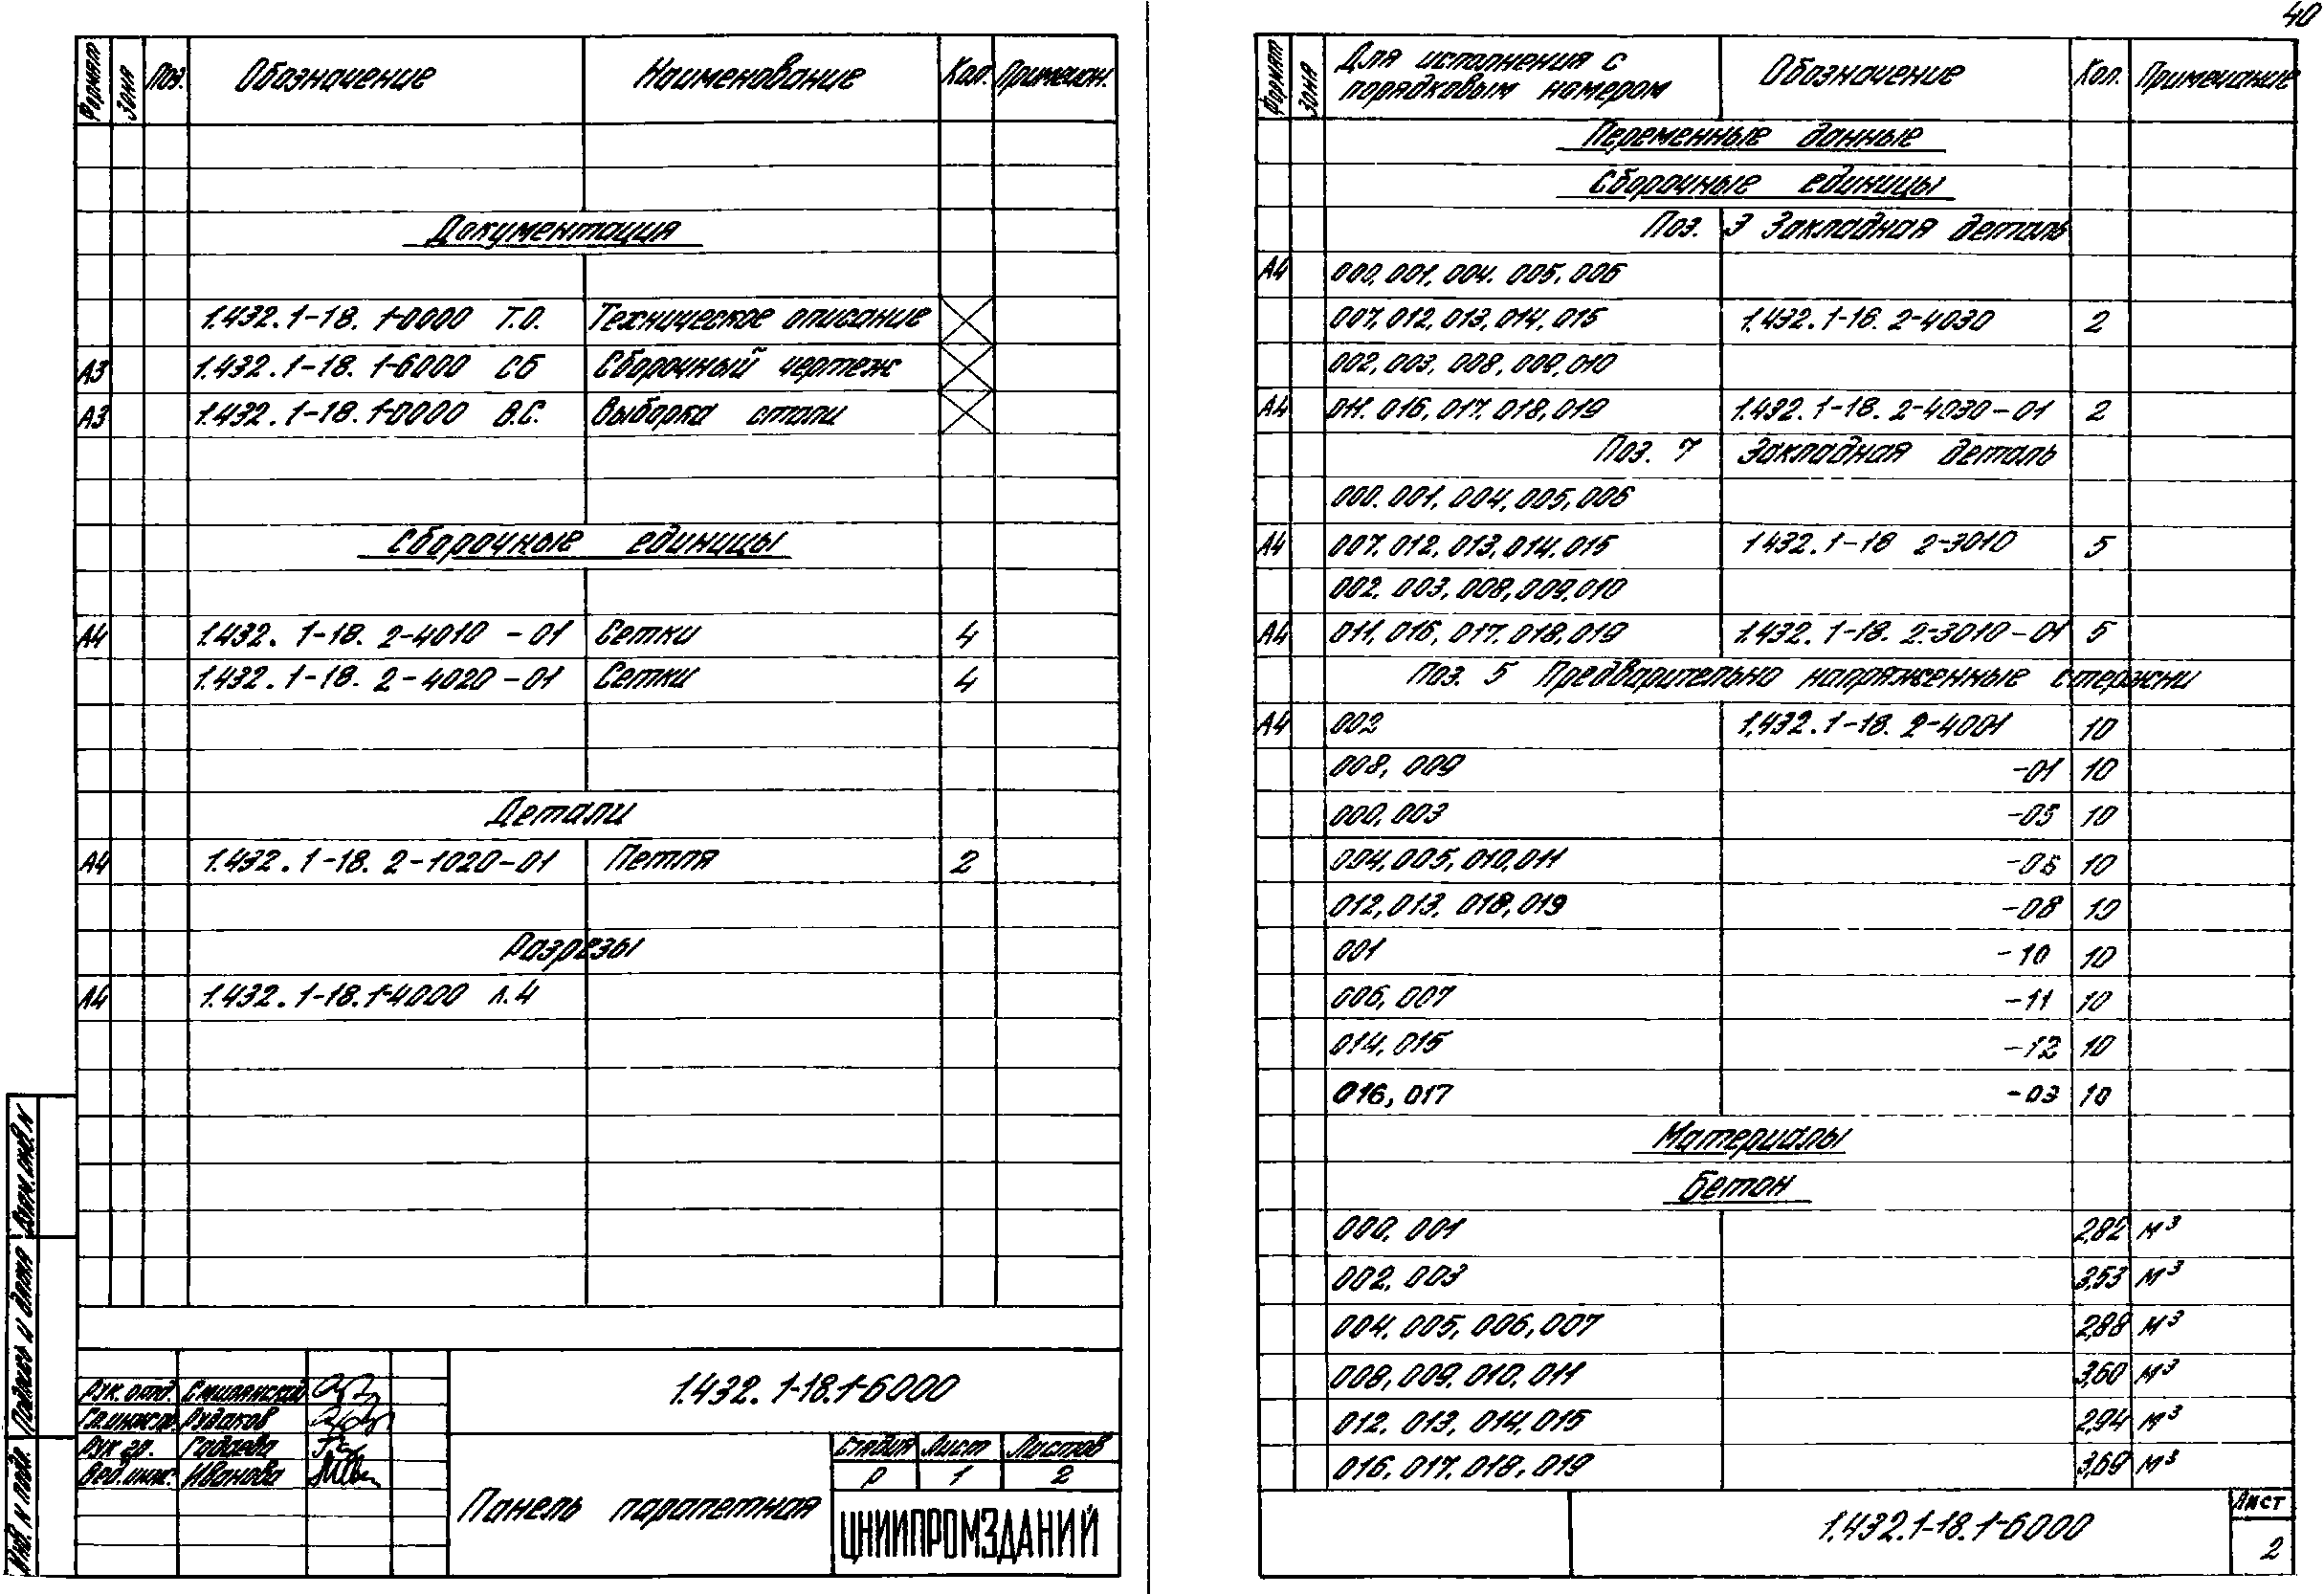 40
Формат Зона Поз. Обозначение Наименование Кол. Примечан.
Документация
1.432.1-18.1-0000 Т.О. Техническое описание
А3 1.432.1-18.1-6000 СБ Сборочный чертеж
А3 1.432.1-18.1-0000 В.С. Выборка стали
Сборочные единицы
А4 1.432.1-18.2-4010-01 Сетки 4
1.432.1-18.2-4020-01 Сетки 4
Детали
А4 1.432.1-18.2-1020-01 Петля 2
Разрезы
А4 1.432.1-18.1-4000 л.4
Взам.инв.N
Подпись и дата
Инв. N подл.
Рук. отд. Смилянский
Гл.инж.пр. Рудаков
Рук гр. Гадаева
Вед.инж. Иванова
1.432.1-18.1-6000
Панель парапетная
Стадия Лист Листов
Р 1 2
ЦНИИПРОМЗДАНИЙ
Формат Зона Для исполнения с порядковым номером Обозначение Кол. Примечание
Переменные данные
Сборочные единицы
Поз. 3 Закладная деталь
А4 000, 001, 004. 005, 006
007, 012, 013, 014, 015 1.432.1-18.2-4030 2
002, 003, 008, 009, 010
А4 011. 016, 017. 018, 019 1.432.1-18.2-4030-01 2
Поз. 7 Закладная деталь
000. 001, 004, 005, 006
А4 007. 012, 013, 014, 015 1.432.1-18 2-3010 5
002. 003, 008, 009, 010
А4 011, 016, 017. 018, 019 1.432.1-18.2-3010-01 5
Поз. 5 Предварительно напряженные стержни
А4 002 1.432.1-18.2-4001 10
008, 009 -01 10
000, 003 -05 10
004, 005, 010, 011 -06 10
012, 013, 018, 019 -08 10
001 -10 10
006, 007 -11 10
014, 015 -12 10
016, 017 -03 10
Материалы
Бетон
000, 001 2,82 м³
002, 003 3,53 м³
004, 005, 006, 007 2,88 м³
008, 009, 010, 011 3,60 м³
012. 013, 014, 015 2,94 м³
016, 017, 018, 019 3,69 м³
1.432.1-18.1-6000
Лист
2